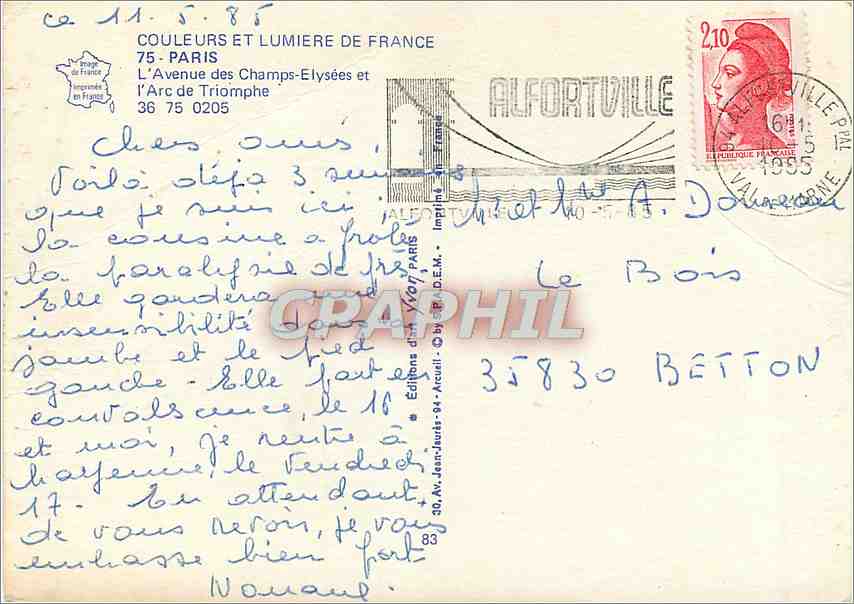 ce 11.5.85
COULEURS ET LUMIERE DE FRANCE
75 - PARIS
L'Avenue des Champs-Elysées et
l'Arc de Triomphe
36 75 0205
Image
de France
Imprimée
en France
Chers amis,
Voilà déjà 3 semaines
que je suis ici,
la cousine a frolé
la paralysie de près.
Elle gardera une
insensibilité dans la
jambe et le pied
gauche. Elle part en
convalscence, le 16
et moi, je rentre à
le Vendredi
17. En attendant
de vous revoir, je vous
embrasse bien fort
* Editions d'art Yvon PARIS
30, Av. Jean-Jaurès - 94 - Arcueil - © by S.P.A.D.E.M. - Imprimé en France
83
ALFORTVILLE
2,10
REPUBLIQUE FRANCAISE
94 ALFORTVILLE PPAL
1985
VAL DE MARNE
Mr et Mme A.
Le Bois
35830 BETTON
CRAPHIL